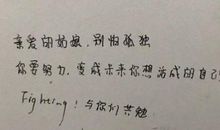 亲爱的姑娘,别怕孤独
你要努力,变成未来你想活成的自己
Fighting!与你们共勉